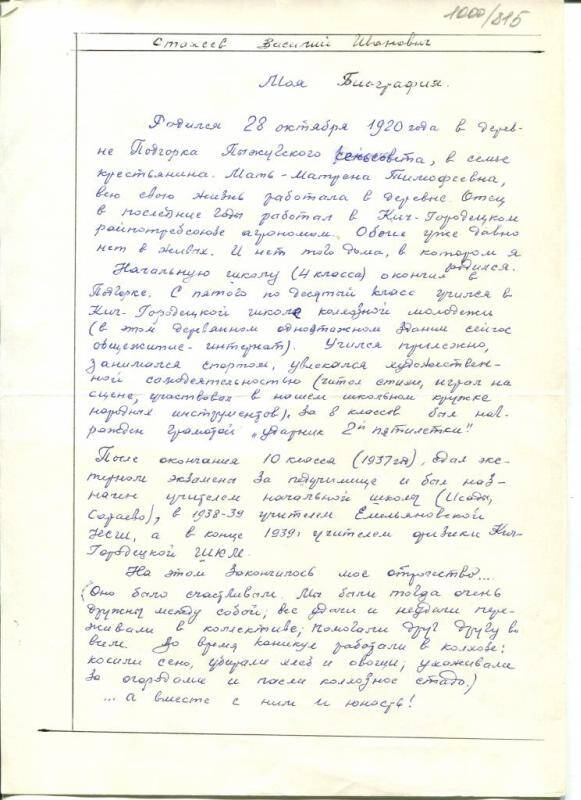 1000/815
Стахеев Василий Иванович
Моя Биография.
Родился 28 октября 1920 года в дерев-
не Подгорка Пыжугского сельсовета, в семье
крестьянина. Мать - Матрена Тимофеевна,
всю свою жизнь работала в деревне. Отец
в последние годы работал в Кич-Городецком
райпотребсоюзе агрономом. Обоие уже давно
нет в живых. И нет того дома, в котором я
родился.
Начальную школу (4 класса) окончил в
Подгорке. С пятого по десятый класс учился в
Кич-Городецкой школе колхозной молодежи
(в этом деревянном одноэтажном здании сейчас
общежитие-интернат). Учился прилежно,
занимался спортом, увлекался художествен-
ной самодеятельностью (читал стихи, играл на
сцене, участвовал в нашем школьном кружке
народных инструментов). За 8 классов был наг-
ражден грамотой „Ударник 2й пятилетки"
После окончания 10 класса (1937 год), сдал экс-
терном экзамены за педучилище и был наз-
начен учителем начальной школы (Исады,
Сараево), в 1938-39 учителем Емельяновской
НСШ, а в конце 1939г учителем физики Кич-
Городецкой ШКМ.
На этом закончилось мое отрочество...
(Оно было счастливым. Мы были тогда очень
дружны между собой; все удачи и неудачи пере-
живали в коллективе; помогали друг другу во
всем. Во время каникул работали в колхозе:
косили сено, убирали хлеб и овощи, ухаживали
за огородами и пасли колхозное стадо.)
... а вместе с ним и юность!